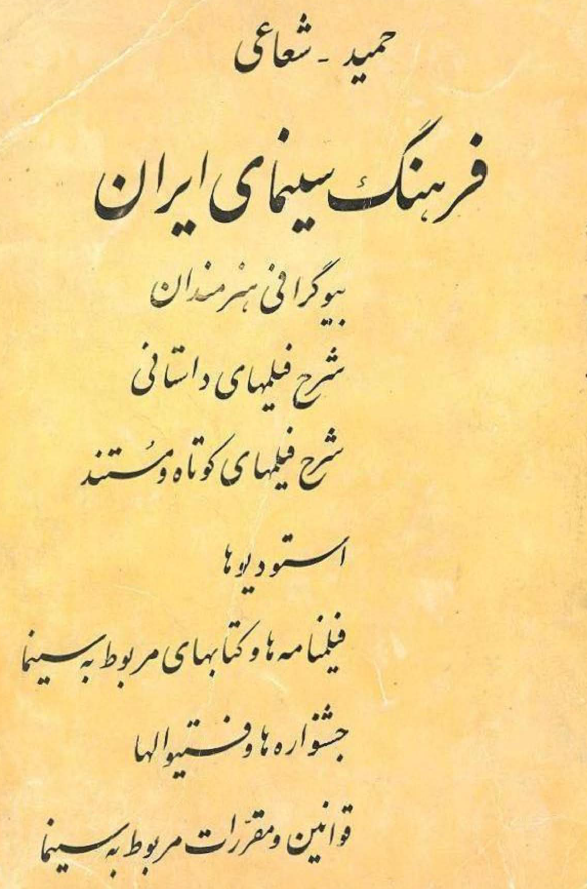 حمید - شعاعی
فرهنگ سینمای ایران
بیوگرافی هنرمندان
شرح فیلمهای داستانی
شرح فیلمهای کوتاه و مُستند
استودیوها
فیلمنامه ها و کتابهای مربوط به سینما
جشنواره ها و فستیوالها
قوانین و مقرّرات مربوط به سینما